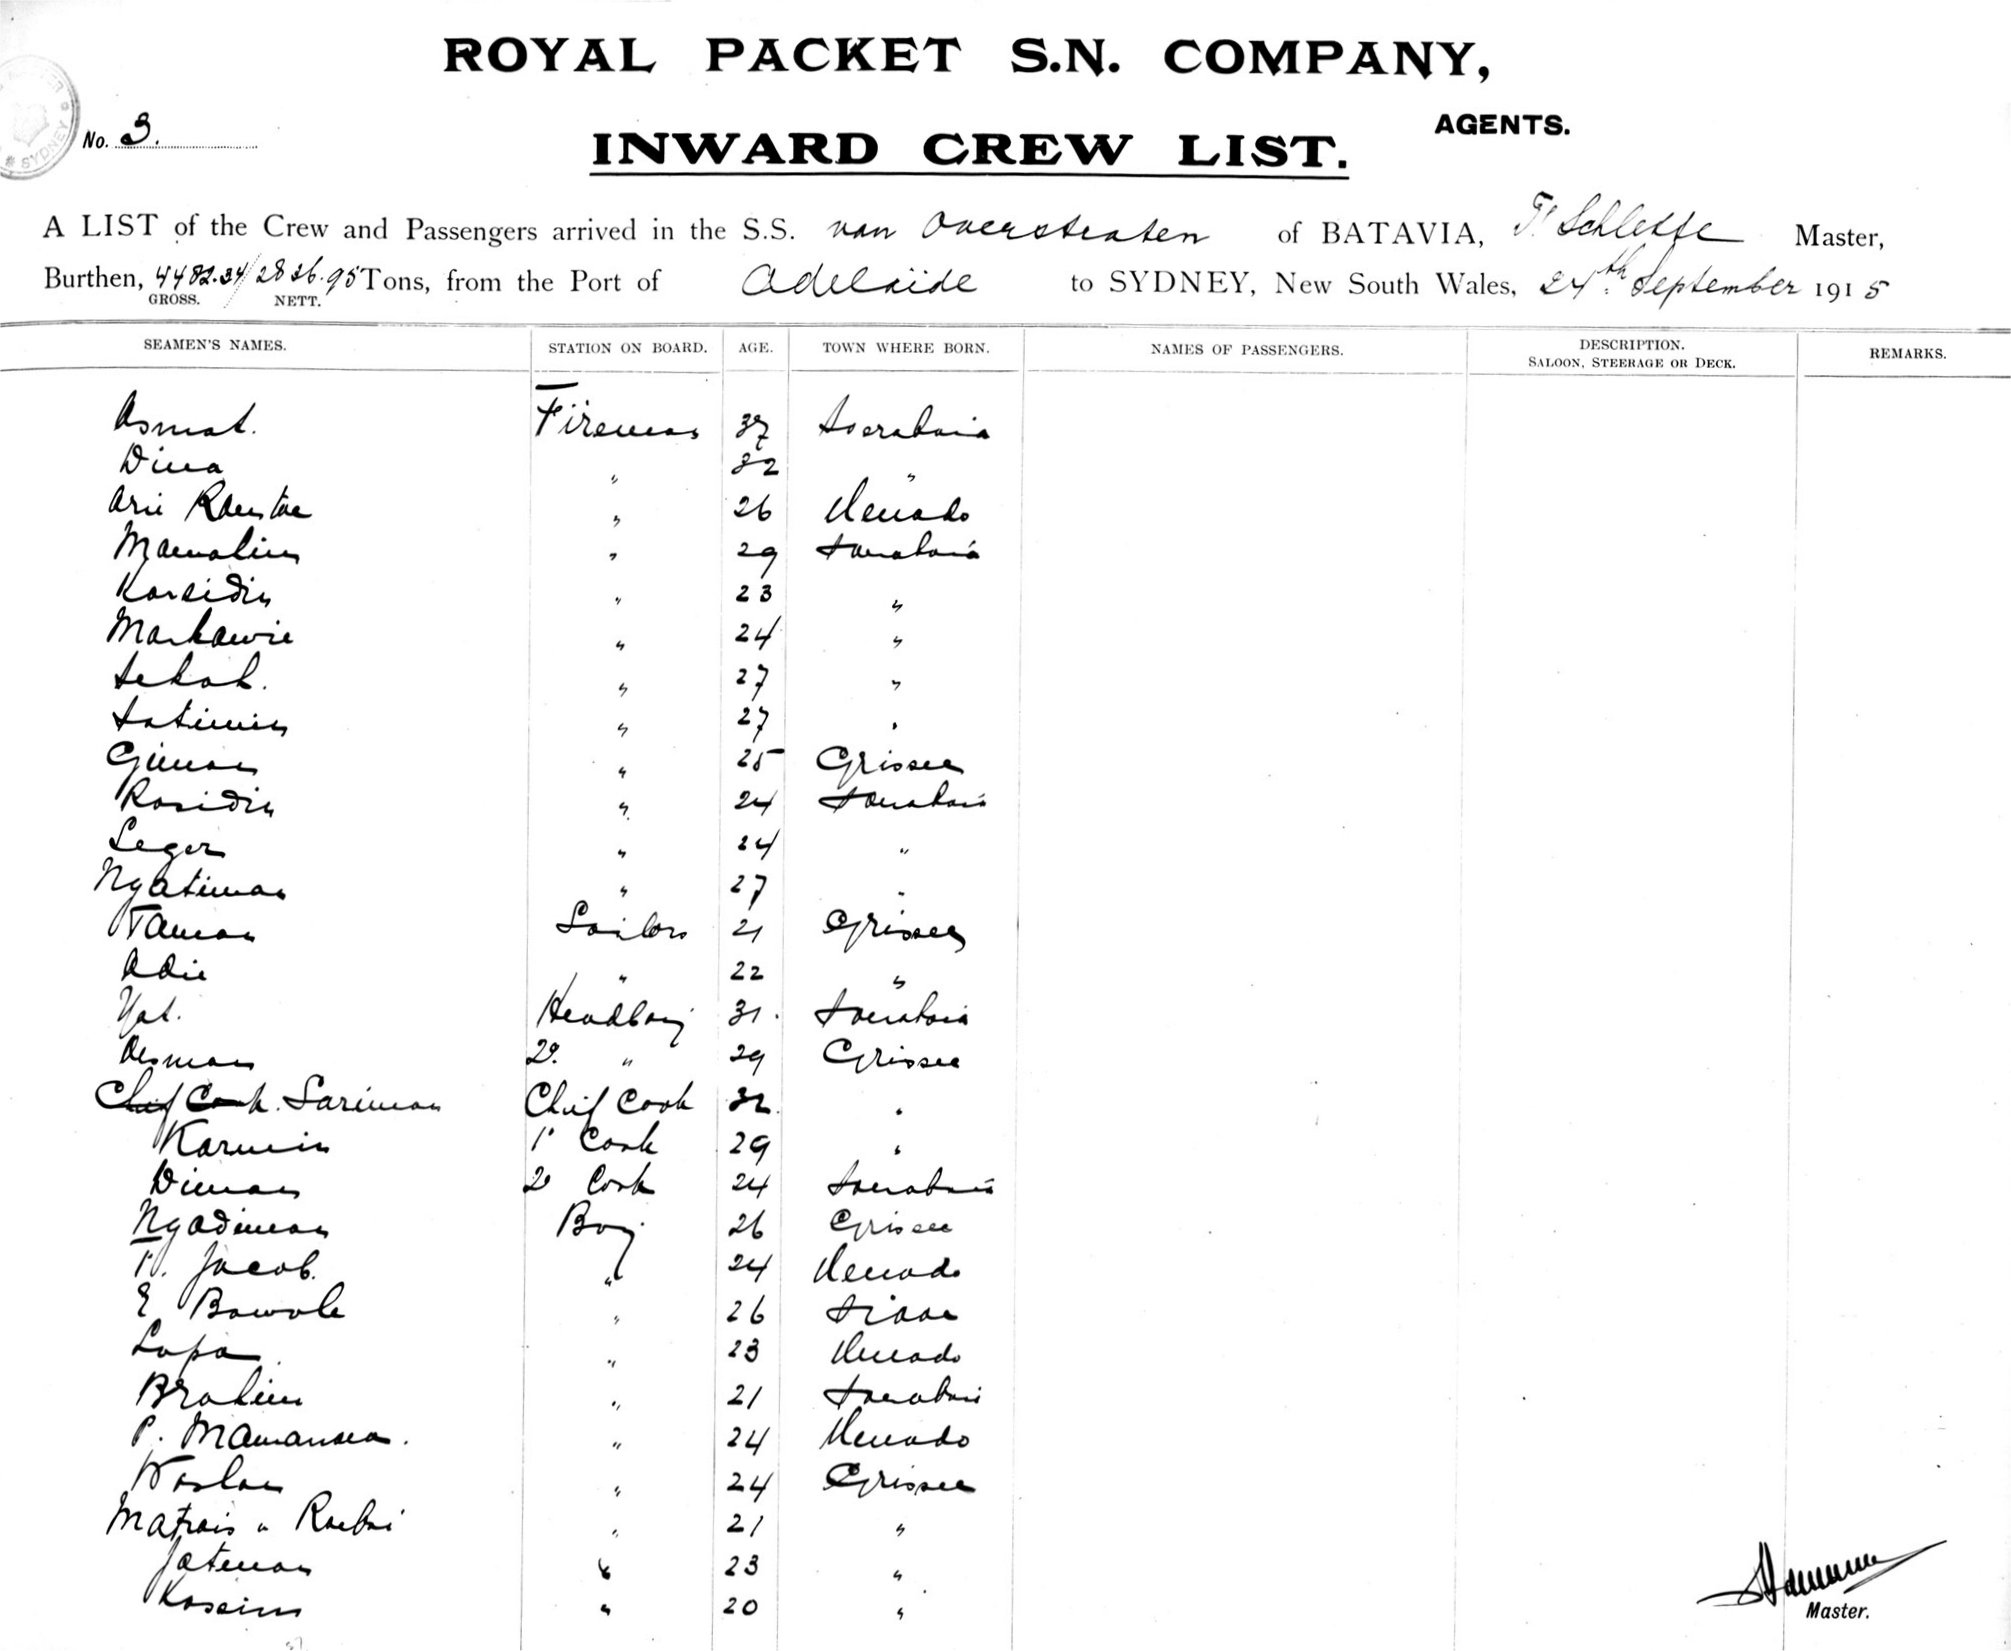 ROYAL PACKET S.N. COMPANY,
AGENTS.
No. 3.
INWARD CREW LIST.
SYDNEY
A LIST of the Crew and Passengers arrived in the S.S. van Overstraten of BATAVIA, Master,
Burthen, 4482.34/2826.95 Tons, from the Port of Adelaide to SYDNEY, New South Wales, 24th September 1915
GROSS. NETT.
SEAMEN'S NAMES. STATION ON BOARD. AGE. TOWN WHERE BORN. NAMES OF PASSENGERS. DESCRIPTION. SALOON, STEERAGE OR DECK. REMARKS.
Asmat. Fireman 37 Soerabaia
Dina " 32 "
Arie " 26 Menado
" 29 Soerabaia
Karsidin " 23 "
Markawie " 24 "
" 27 "
Satimin " 27 "
Giman " 25 Grissee
Rasidin " 24 Soerabaia
Leger " 24 "
Ngatiman " 27 "
Taman Sailors 21 Grissee
Adie " 22 "
Yat. Headboy 31. Soerabaia
Oesman 2e. " 29 Grissee
Chief Cook. Sariman Chief Cook 32 "
Karmin 1e Cook 29 "
Diman 2e Cook 24 Soerabaia
Ngadiman Boy 26 Grissee
Jacob. " 24 Menado
E Bawole " 26 Siaoe
Lapa " 23 Menado
Brahim " 21 Soerabaia
P. " 24 Menado
Waslan " 24 Grissee
Matrais " 21 "
Jateman " 23 "
Kassim " 20 "
Master.